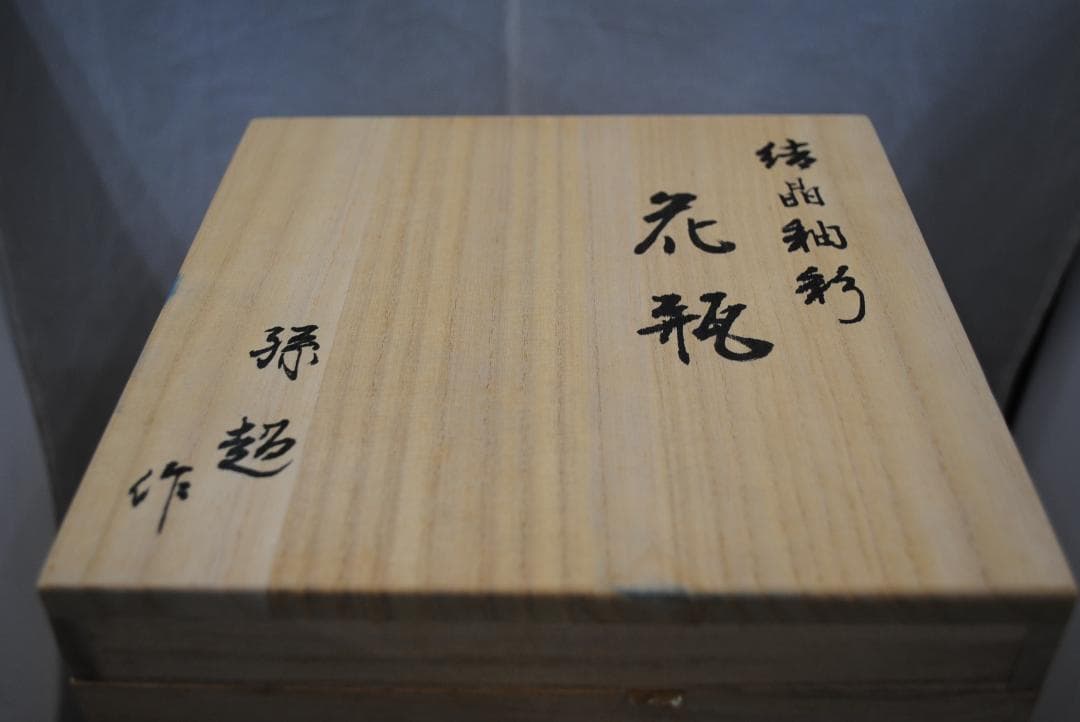 结晶釉彩
花瓶
孫超
作